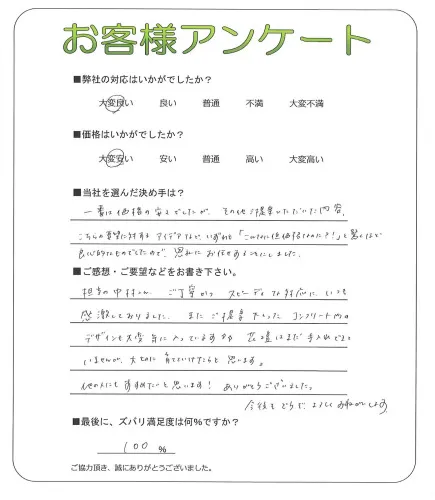 お客様アンケート
■弊社の対応はいかがでしたか？
大変良い 良い 普通 不満 大変不満
■価格はいかがでしたか？
大変安い 安い 普通 高い 大変高い
■当社を選んだ決め手は？
一番は価格の安さでしたが、その他ご提案いただいた内容、
こちらの要望に対するアイデアなど、いずれも「こんなに低価格なのに？！」と驚くほど
良心的なものでしたので、思わずお任せすることにしました。
■ご感想・ご要望などをお書き下さい。
担当の中村さん、ご丁寧かつスピーディな対応に、いつも
感激しておりました。またご提案下さったコンクリートの
デザインも大変気に入っていますが花壇はまだ手入れできて
いませんが、大切に育てていけたらと思います。
他の人にもすすめたいと思います！ ありがとうございました。
今後もどうぞ、よろしくお願いします
■最後に、ズバリ満足度は何％ですか？
100 ％
ご協力頂き、誠にありがとうございました。